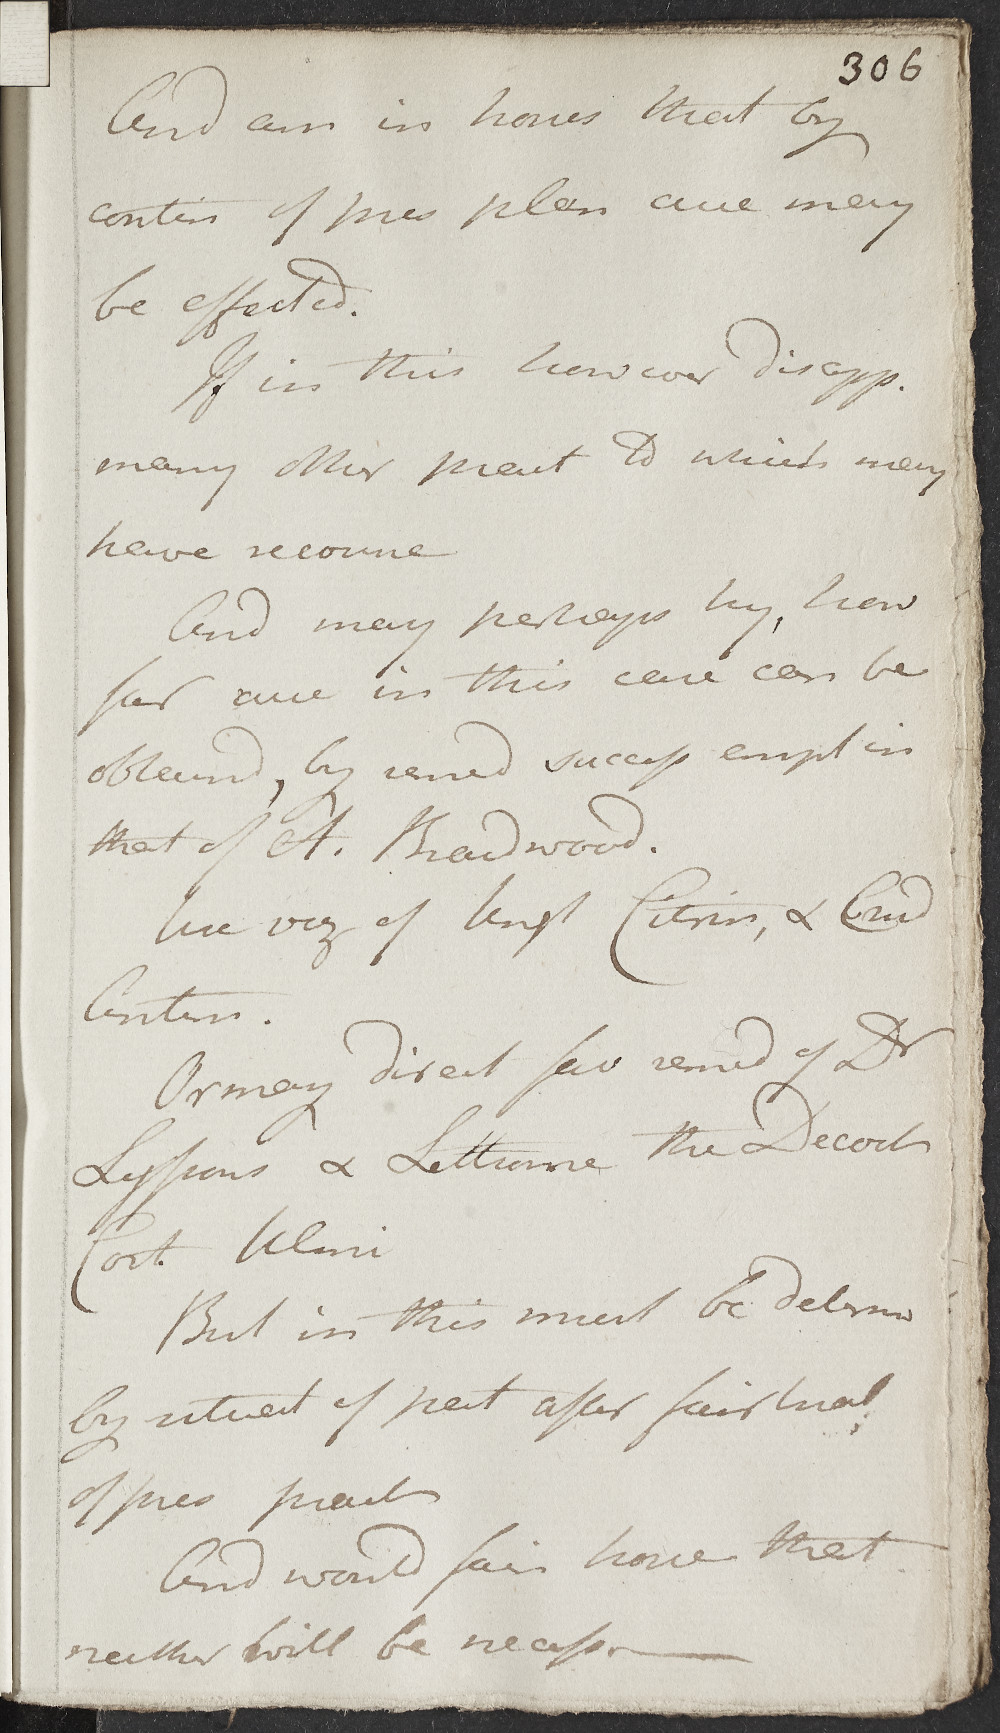 306
And am in hopes that by
contin of pres plan cure may
be effected.
If in this however disapp.
many other pract to which may
have recourse
And may perhaps try, how
far cure in this case can be
obtaind, by remed success empl in
that of A. Braidwood.
Use viz of Ungt Citrin, & Crud
Antim.
Or may direct fav remed of Dr
Lyssons & Lettsome the Decoct
Cort. Ulmi
But in this must be determ
by situat of pat after fair trial,
of pres pract
And would fain hope that
neither will be necessr